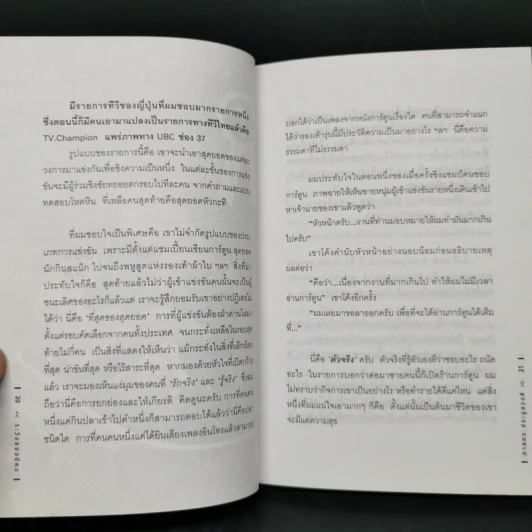 มีรายการทีวีของญี่ปุ่นที่ผมชอบมากรายการหนึ่ง
ซึ่งตอนนี้ก็มีคนเอามาแปลงเป็นรายการทางทีวีไทยแล้วคือ
TV.Champion แพร่ภาพทาง UBC ช่อง 37
รูปแบบของรายการนี้คือ เขาจะนำเอาสุดยอดของแต่ละ
วงการมาแข่งกันเพื่อชิงความเป็นหนึ่ง ในแต่ละชั้นของการแข่ง
ขันจะมีผู้ร่วมชิงชัยทยอยตกรอบไปทีละคน จากคำถามและแบบ
ทดสอบโหดหิน ที่เหลือคนสุดท้ายคือสุดยอดหัวกะทิ
ที่ผมชอบใจเป็นพิเศษคือ เขาไม่จำกัดรูปแบบของประ
เภทการแข่งขัน เพราะมีตั้งแต่แชมเปี้ยนเขียนการ์ตูน สุดยอด
นักกินสแน็ก ไปจนถึงพหูสูตแห่งรองเท้าผ้าใบ ฯลฯ สิ่งที่น่า
ประทับใจก็คือ สุดท้ายแล้วไม่ว่าผู้เข้าแข่งขันคนนั้นจะเป็นผู้
ชนะเลิศของอะไรก็แล้วแต่ เราจะรู้สึกยอมรับเขาอย่างปฏิเสธไม่
ได้ว่า นี่คือ 'ที่สุดของสุดยอด' การที่ผู้แข่งขันต้องฝ่าด่านโหด
ตั้งแต่รอบคัดเลือกจากคนทั้งประเทศ จนกระทั่งเหลือในรอบสุด
ท้ายไม่กี่คน เป็นสิ่งที่แสดงให้เห็นว่า แม้กระทั่งในสิ่งที่เล็กน้อย
ที่สุด น่าขันที่สุด หรือไร้สาระที่สุด หากมองด้วยหัวใจที่เปิดกว้าง
แล้ว เราจะมองเห็นแง่มุมของคนที่ 'รักจริง' และ 'รู้จริง' ซึ่งผม
ถือว่านี่คือการยกย่องและให้เกียรติ คิดดูนะครับ การที่คนคน
หนึ่งแค่กินปลาเข้าไปคำหนึ่งก็สามารถตอบได้แล้วว่านี่คือปลา
ชนิดใด การที่คนคนหนึ่งแค่ได้ยินเสียงเพลงอินโทรแล้วสามารถ
| 20 <<
บอกได้ว่าเป็นเพลงจากหนังการ์ตูนเรื่องใด คนที่สามารถจำแนก
ได้ว่ารองเท้ารุ่นนี้มีประวัติความเป็นมาอย่างไร ฯลฯ นี่คือความ
ธรรมดาที่ไม่ธรรมดา
ผมประทับใจในตอนหนึ่งของเมื่อครั้งชิงแชมป์คนชอบ
การ์ตูน ภาพฉายให้เห็นชายหนุ่มผู้เข้าแข่งขันรายหนึ่งเดินเข้าไป
หาเจ้านายของเขาแล้วพูดว่า
"หัวหน้าครับ...งานที่ท่านมอบหมายให้ผมทำมันมากเกิน
ไปครับ"
เขาโค้งคำนับหัวหน้าอย่างนอบน้อมก่อนอธิบายเหตุ
ผลต่อว่า
"คือว่า...เนื่องจากงานที่มากเกินไป ทำให้ผมไม่มีเวลา
อ่านการ์ตูน" เขาโค้งอีกครั้ง
"ผมเลยมาขอลาออกครับ เพื่อที่จะได้อ่านการ์ตูนได้เต็ม
ที่..."
นี่คือ 'ตัวจริง' ครับ ตัวจริงที่รู้ตัวเองดีว่าชอบอะไร ถนัด
อะไร ในรายการบอกว่าต่อมาชายคนนี้ก็เปิดร้านการ์ตูน ผม
ไม่ทราบว่ากิจการเขาเป็นอย่างไร หรือทำรายได้ดีแค่ไหน แต่สิ่ง
ที่ผมแน่ใจเอามากๆ ก็คือ ตั้งแต่นั้นเป็นต้นมาชีวิตของเขา
จะมีแต่ความสุข